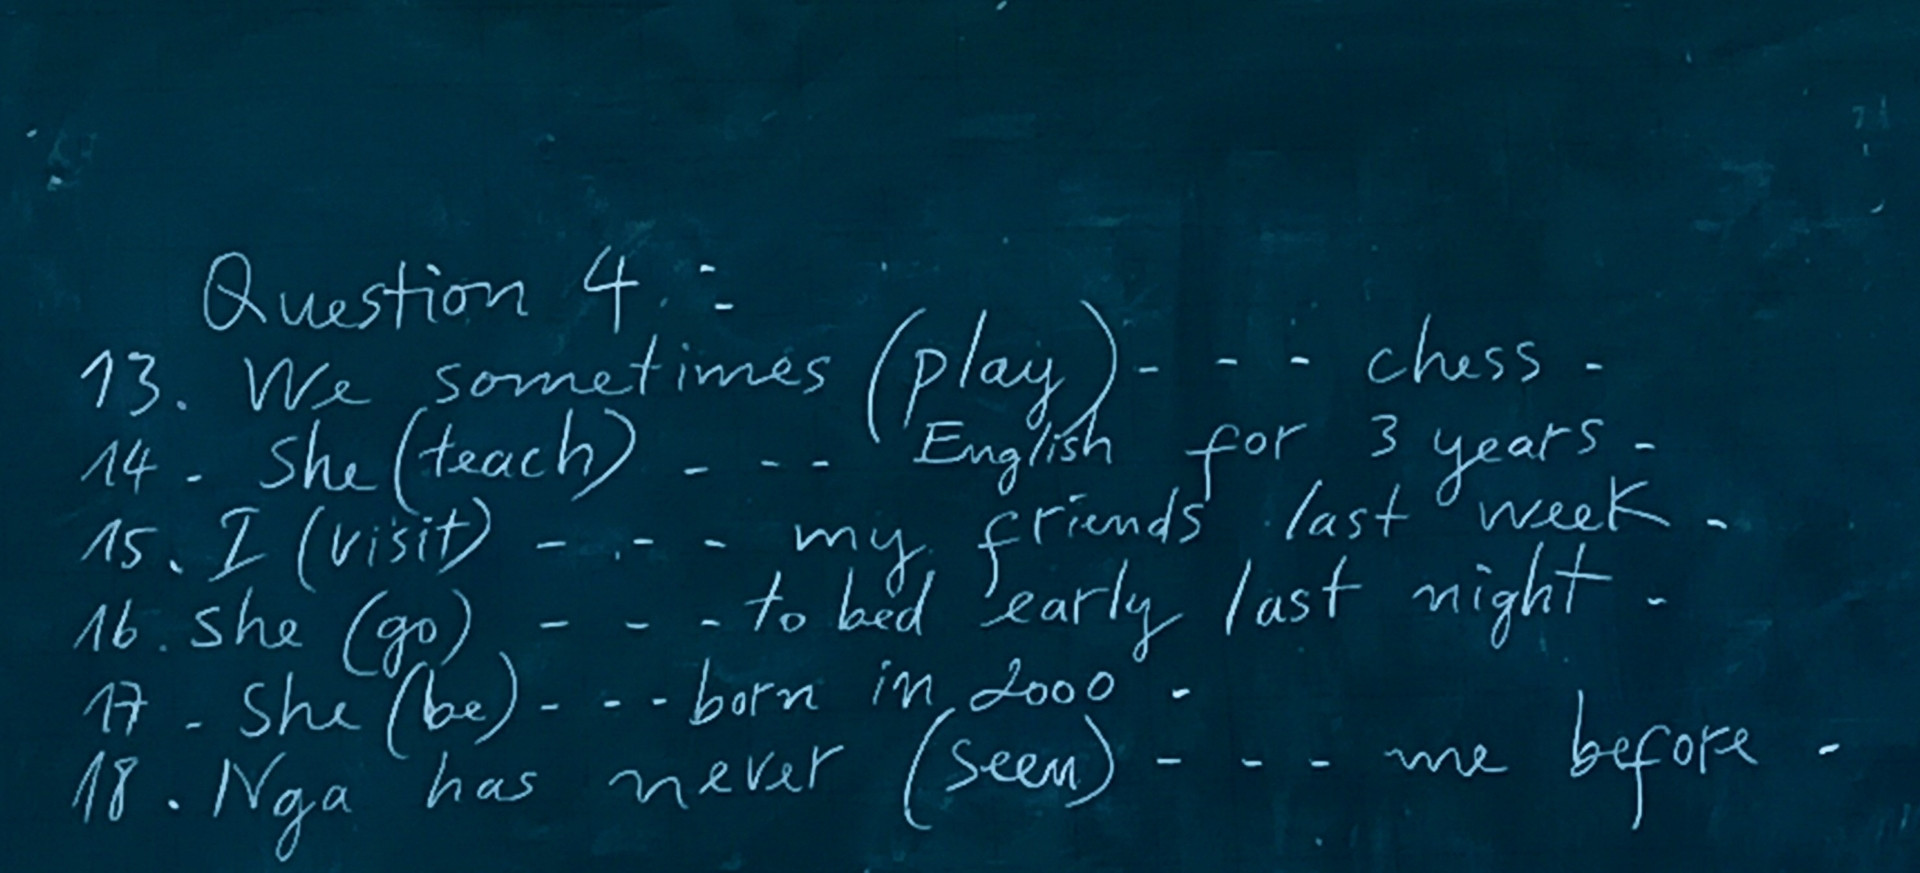 Question 4 :
13. We sometimes (play) - - - chess .
14 . She (teach) - - - English for 3 years .
15. I (visit) - - - my friends last week .
16. She (go) - - - to bed early last night .
17 . She (be) - - - born in 2000 .
18 . Nga has never (seen) - - - me before .